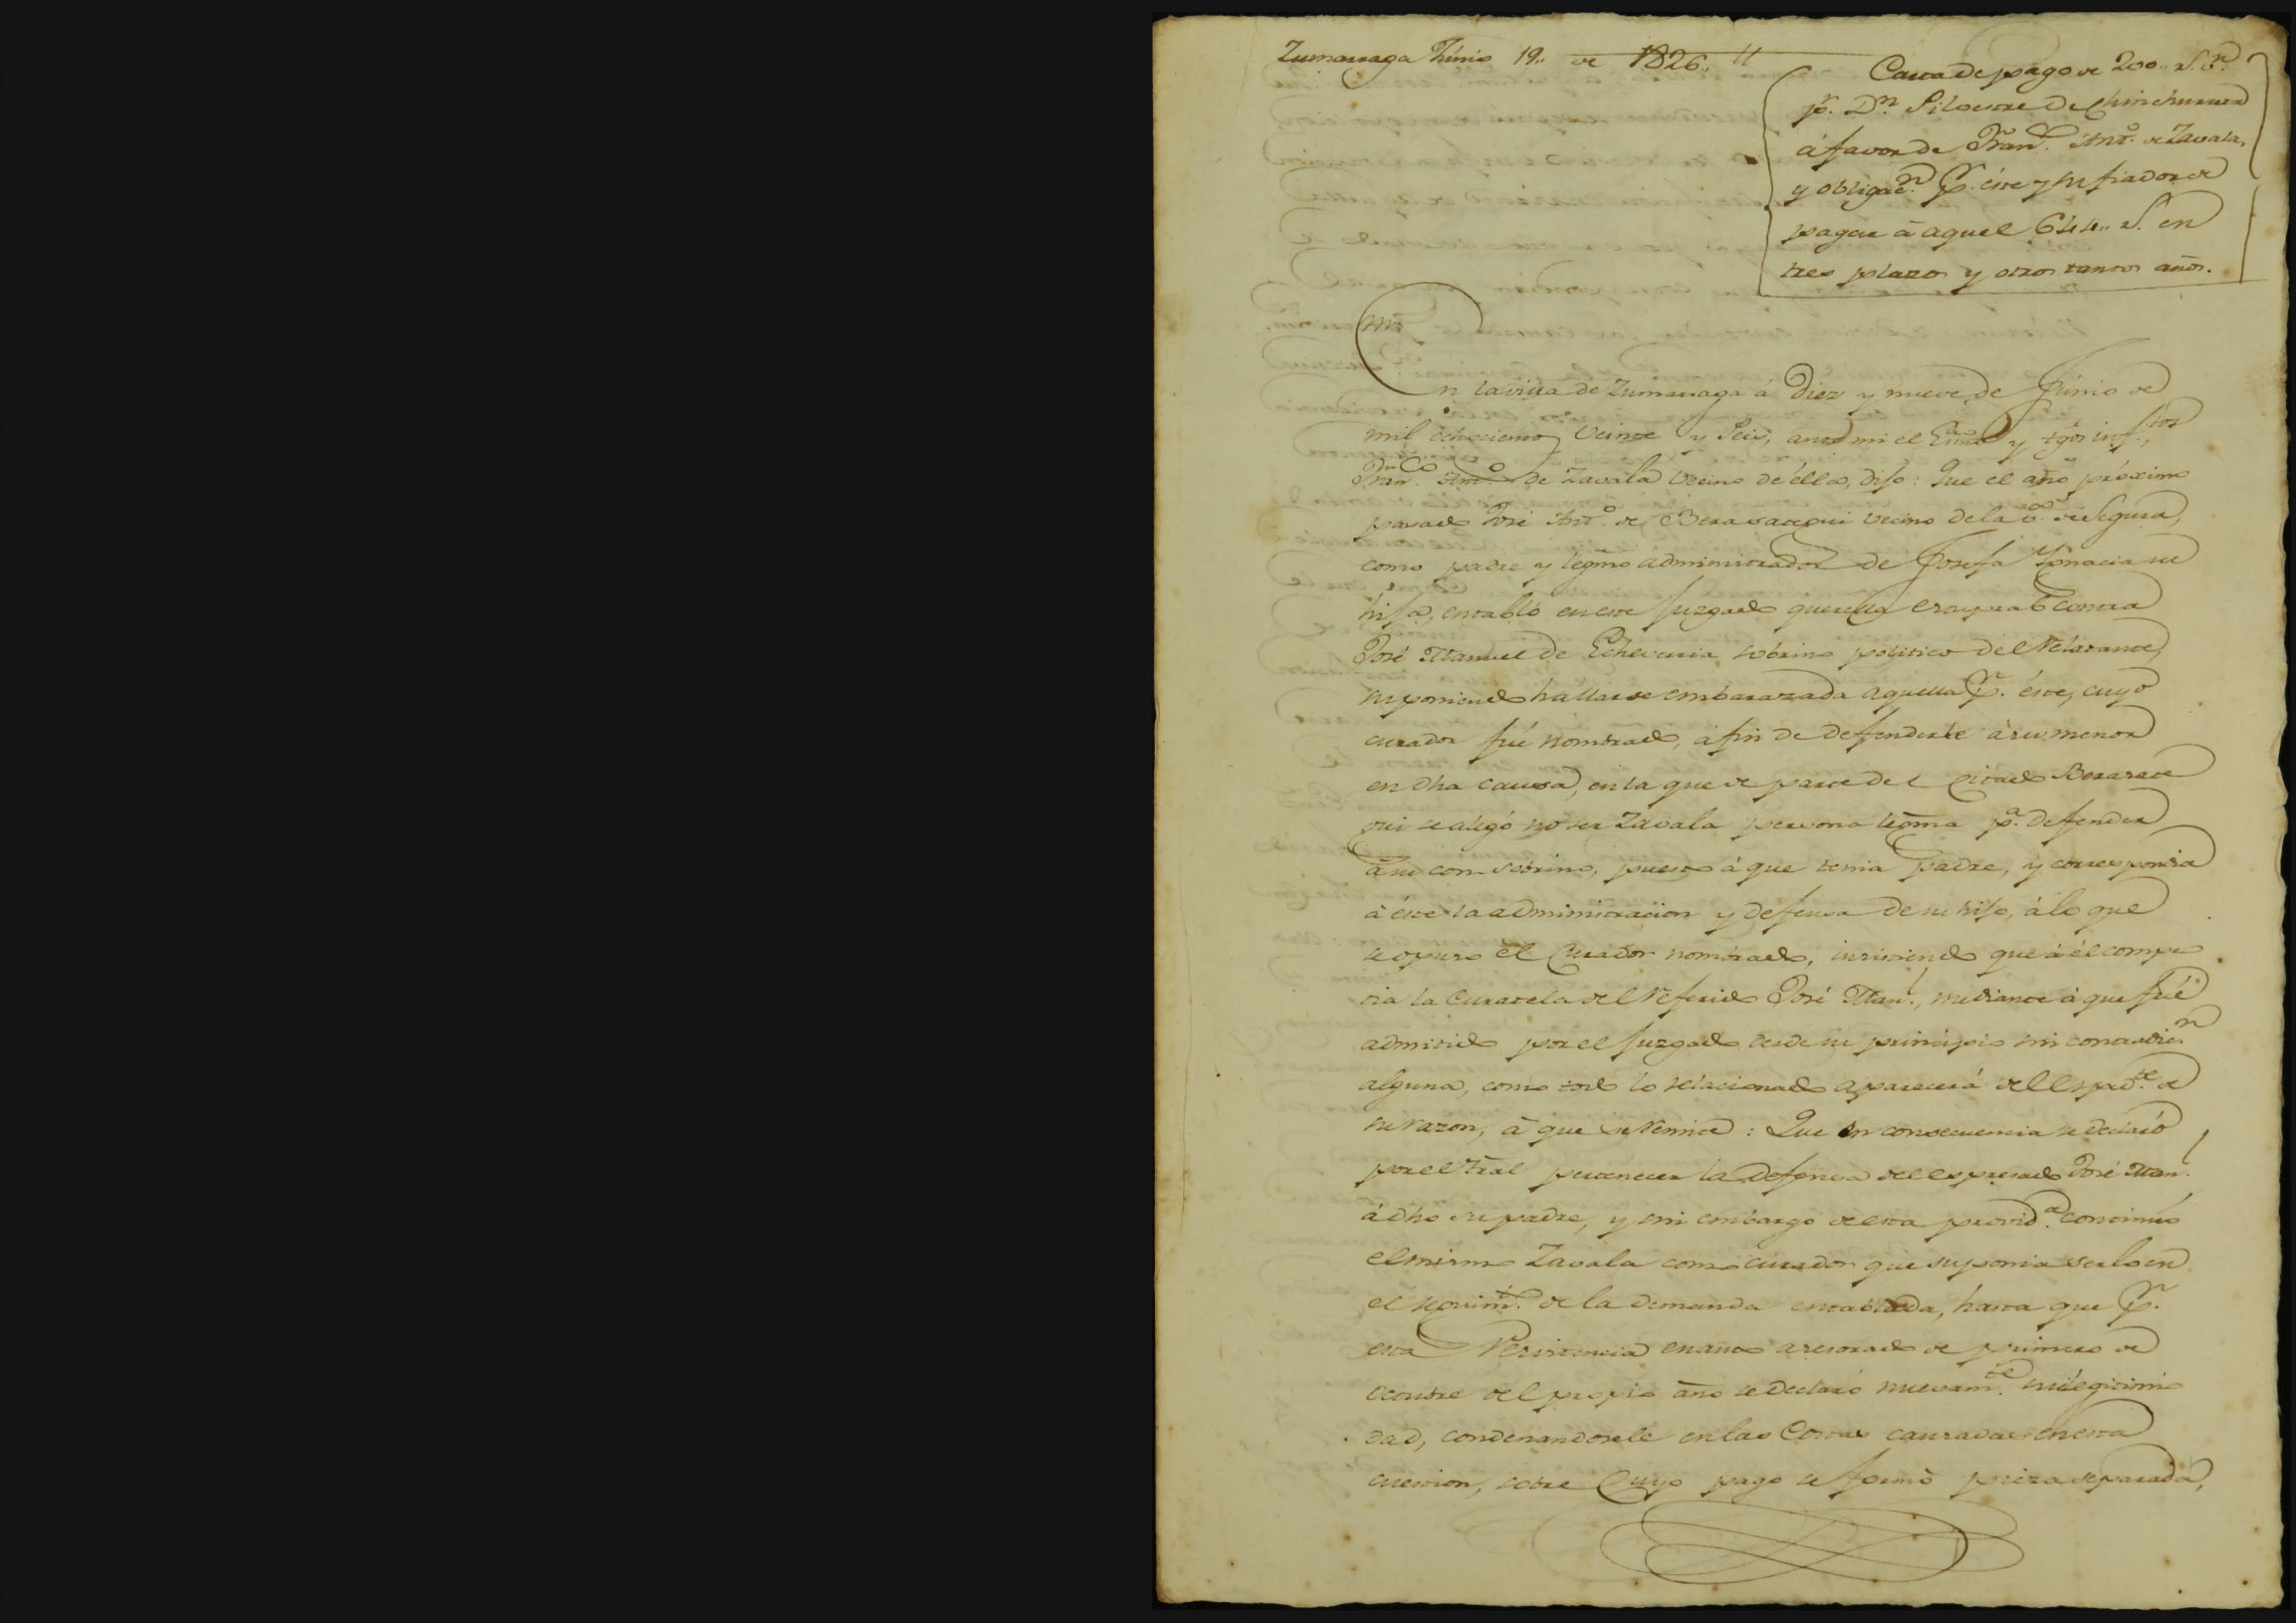 Zumarraga Júnio 19.. de 1826.. "
Carta de pago de 200.. r.s v.n
p.r D.n Silvestre de Chinchurreta
á favor de Fran.co Ant.o de Zavala,
y obligac.n p.r éste y su fiador de
pagar á aquel 644.. r.s en
tres plazos y otros tantos años.
En la villa de Zumarraga á Diez y nueve de Júnio de
mil ochocientos veinte y seis, ante mi el Esno y tgos infr.tos
Fran.co Ant.o de Zavala vecino de élla, dijo: Que el año próximo
pasado José Ant.o de Berasategui vecino de la v.a de Segura,
como padre y legmo administrador de Josefa Ygnacia su
hija, entabló en este Juzgado querella estupra contra
José Manuel de Echeverria sobrino politico del Relatante,
suponiendo hallarse embarazada aquella p.r éste, cuyo
curador fué nombrado, á fin de defenderle á su menor
en dha causa, en la que de parte del citado Berasate
gui se alegó no ser Zavala persona legma p.a defender
á su con sobrino, puesto á que tenia padre, y correspondia
á éste la administracion y defensa de su hijo, á lo que
se opuso él Curador nombrado, insistiendo que á él compe
tia la Curatela del Referido José Man.l, mediante á que fué
admitido por el Juzgado desde su principio sin contradic.n
alguna, como todo lo relacionado aparecerá del Esped.te de
su razon, á que se Remite: Que en consecuencia se declaró
por el Tral pertenecer la defensa del espresado José Man.l
á dho su padre, y sin embargo de esta provid.a continuó
el mismo Zavala como curador que suponia serlo en
el seguim.to de la demanda entablada, hasta que p.r
esta Resistencia en auto asesorado de primero de
octubre del propio año se declaró nuevam.te su ilegitimi
dad, condenandosele en las Costas causadas en esta
cuestion, sobre cuyo pago se formó pieza separada,